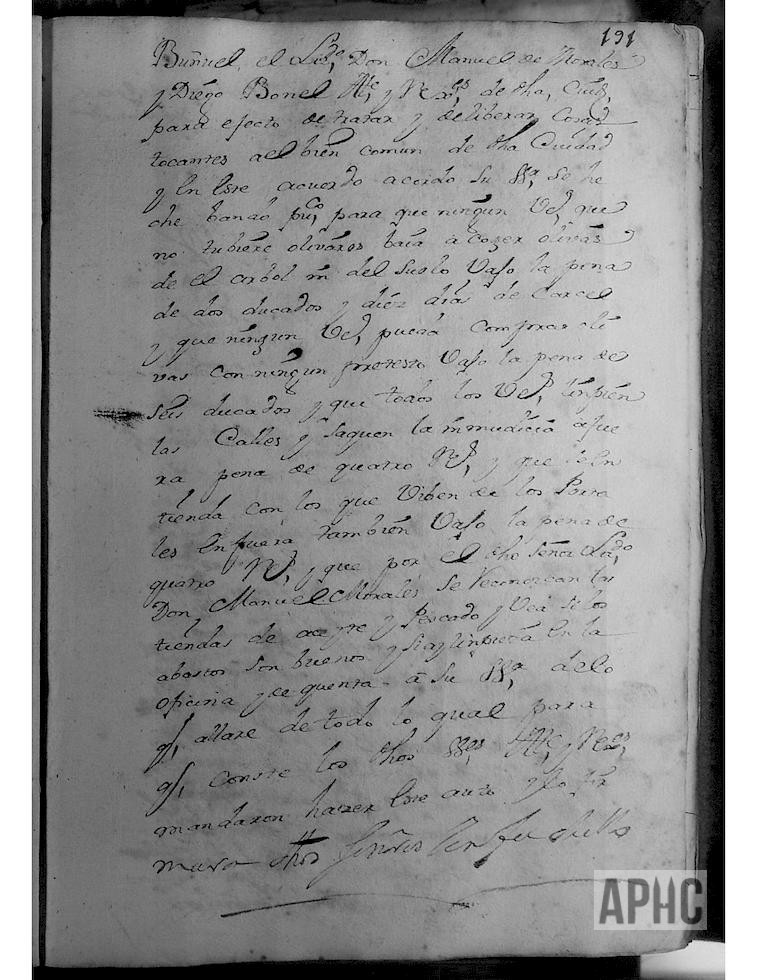 191
Buñuel, el Lizdo, Don Manuel de Morales
y Diego Bonel Alle, y Rexes, de dha, Ciud,
para efecto de tratar y deliberar Cosas
tocantes a el bien comun de dha Ciudad
y En este acuerdo acordo Su SSa, Se he
che bando puco, para que ningun Veo, que
no tubiere olivares baia a cozer olivas
de el arbol ni del suelo Vajo la pena
de dos ducados y diez dias de Carcel
y que ningun Veo, pueda comprar oli
vas con ningun pretesto Vajo la pena de
seis ducados y que todos los Veos, linpien
las Calles y saquen la inmudicia afue
ra pena de quatro Rs, y que se en
tienda con los que Viben de los Porta
les En fuera tambien Vajo la pena de
quatro Rs, y que por el dho Señor Lizdo,
Don Manuel Morales se reconozcan las
tiendas de azeyte y Pescado y Vea si los
abastos son buenos y si ay linpieza En la
oficina y de quenta a Su SSa, de lo
q, allare de todo lo qual para
q, conste los dhos SSes, Alle, y Rexes,
mandaron hazer Este auto y lo fir
maron dhos Señores
APHC